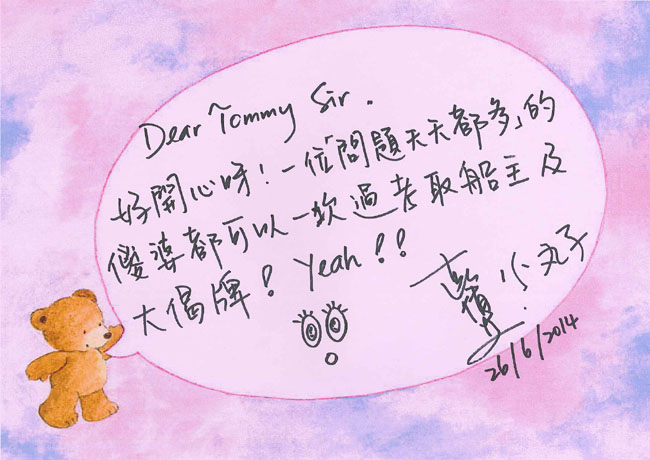 Dear Tommy Sir.
好開心呀！一位「問題天天都多」的
傻婆都可以一次過考取船主及
大偈牌！Yeah!!
小丸子
26/6/2014